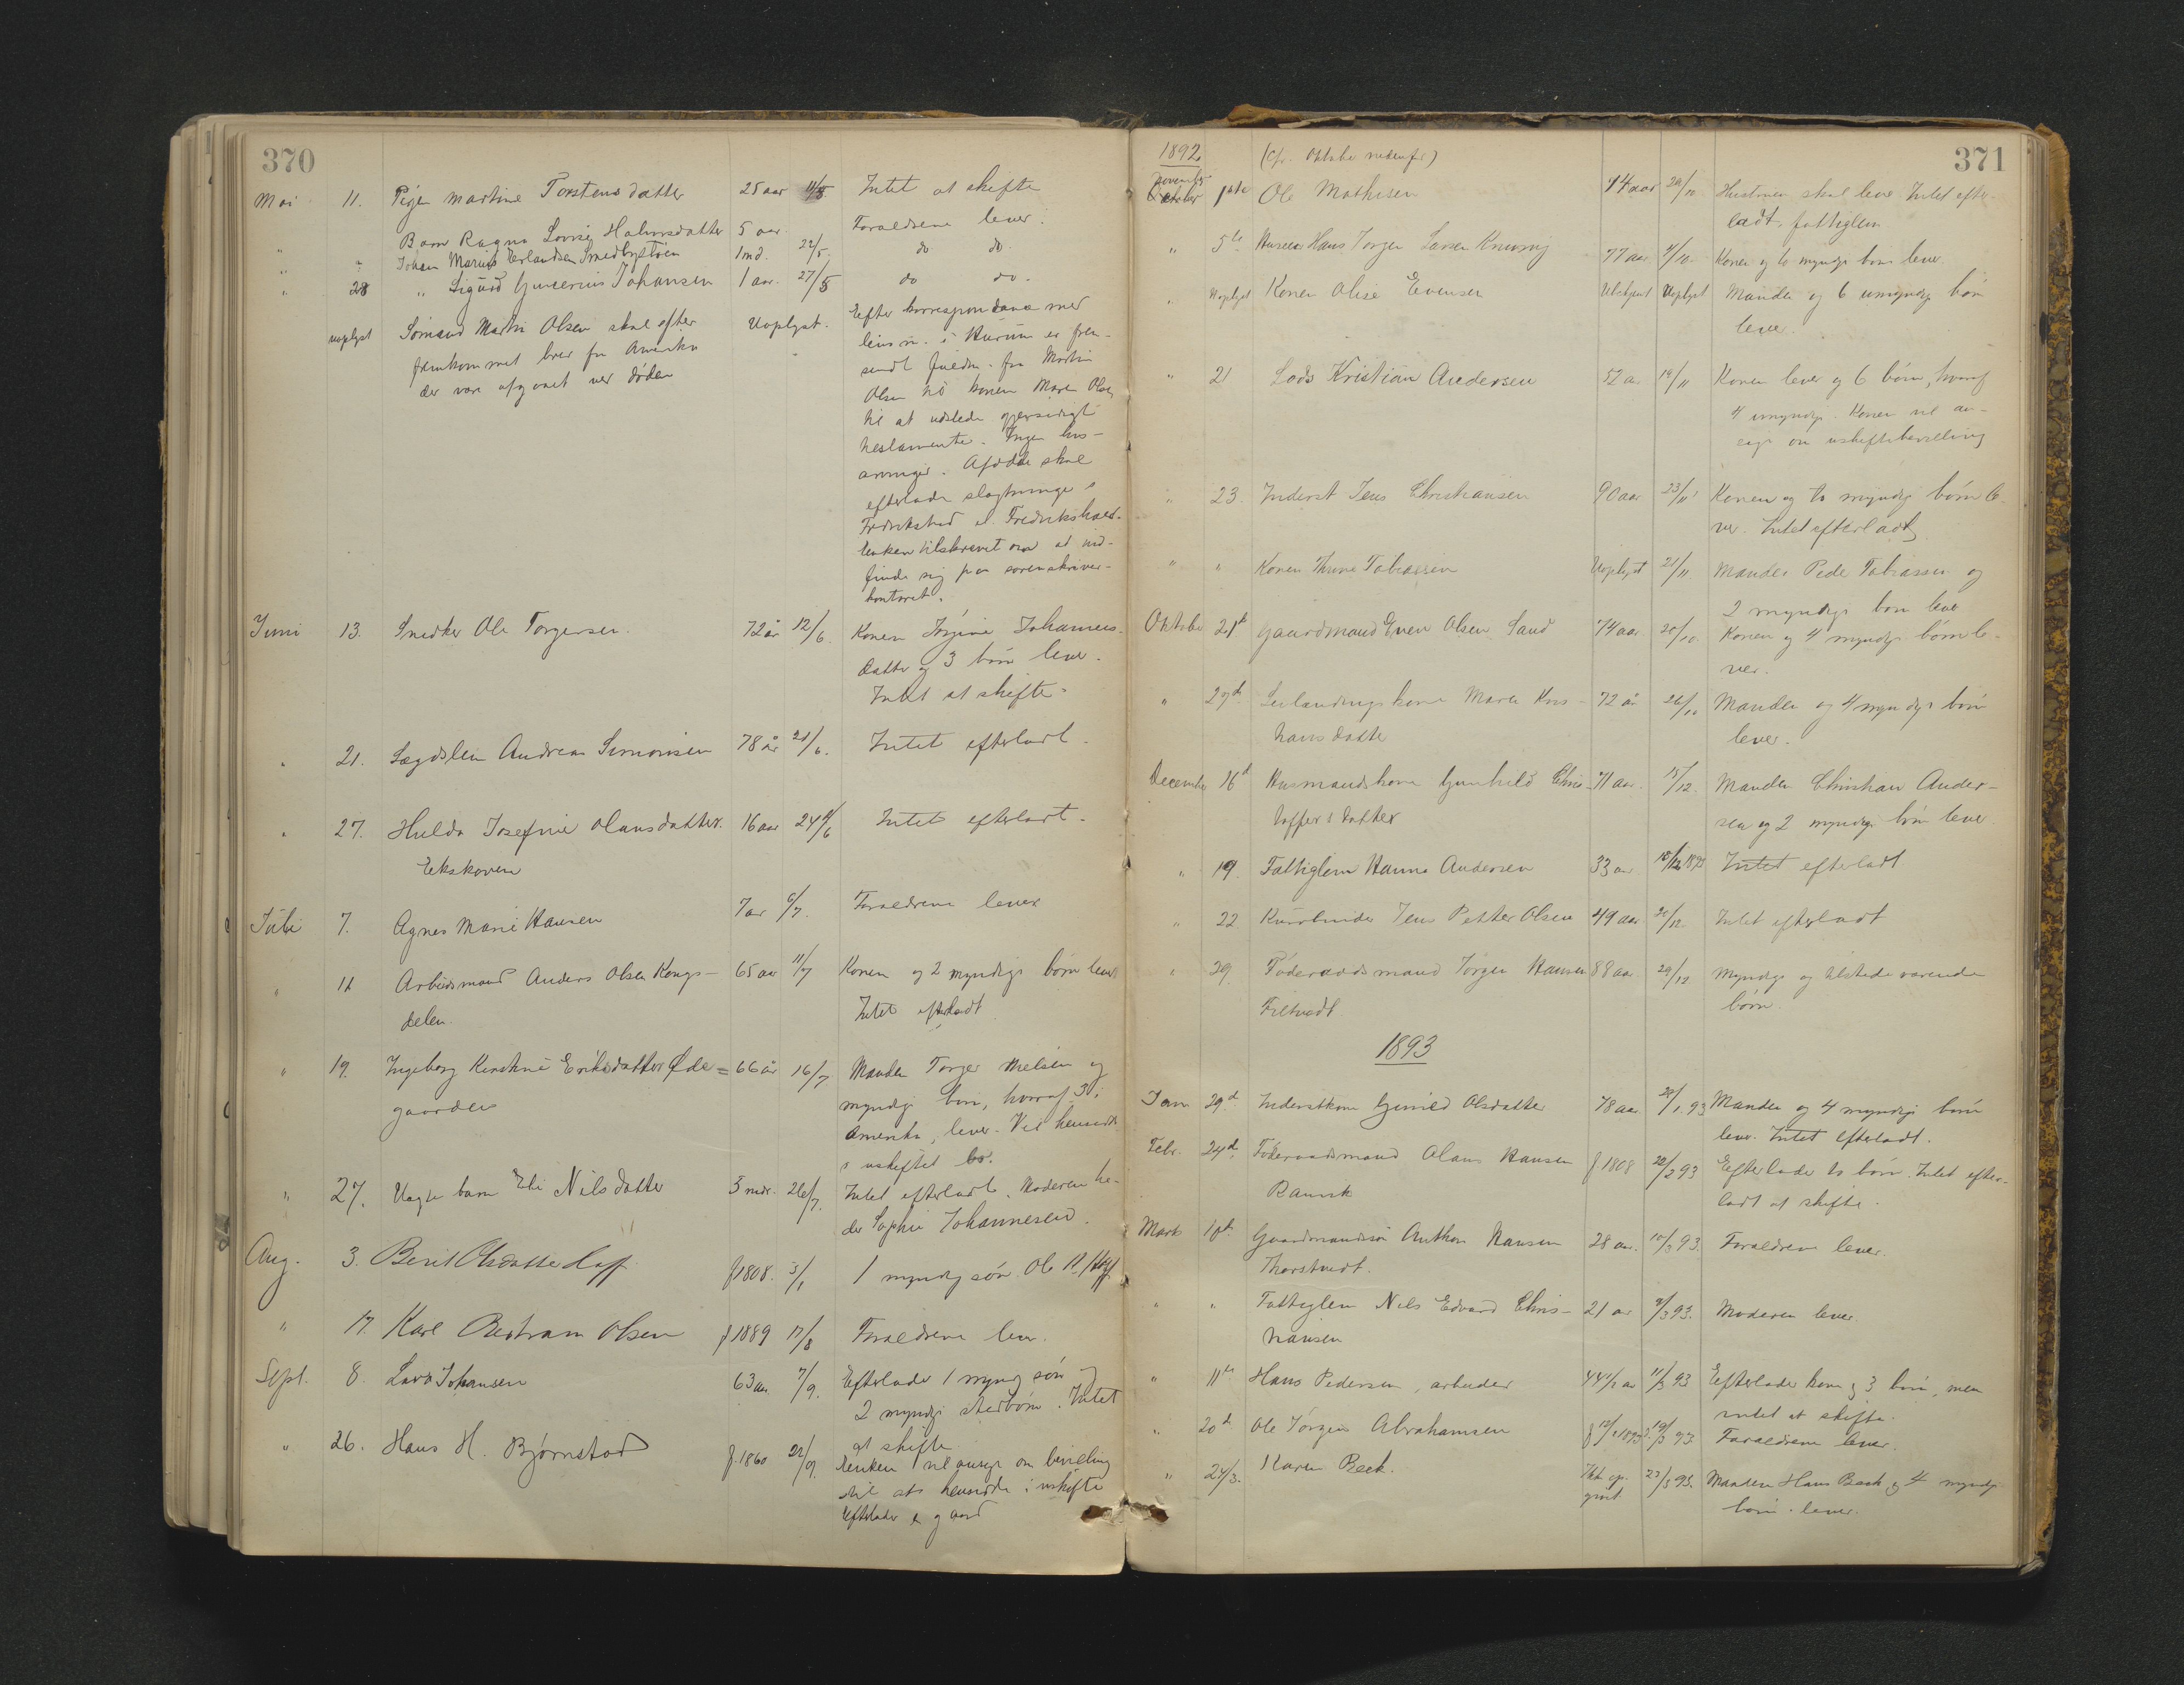 370
Mai 11. Pigen Martine Torstensdatter 25 aar 11/5. Intet at skifte
" Barn Ragna Lovise Halvorsdatter 5 aar. Forældrene lever.
" " Johan Marius Erlandsen Smedbystøen 1 md. 22/5. do do.
" 28 " Sigurd Gunerius Johansen 1 aar. 27/5 do do.
uoplyst Sømand Martin Olsen skal efter Uoplyst. Efter korrespondance med
fremkommet brev fra Amerika lensm. i Hurum er frem-
der være afgaaet ved døden sendt fuldm. fra Martin
Olsen til konen Maren Olsen
til at udstede gjensidigt
testamente. Ingen livs-
arvinger. Afdøde skal
efterlade slægtninge i
Fredrikstad el. Fredrikshald.
Enken tilskrevet om at ind-
finde sig paa sorenskriver-
kontoret.
Juni 13. Snedker Ole Torgersen. 72 år 12/6. Konen Jørgine Johannes-
datter og 3 børn lever.
Intet at skifte.
" 21. Lægdslem Andreas Simonsen 78 år 21/6. Intet efterladt.
" 27. Hulda Josefine Olausdatter. 16 aar 24/6 Intet efterladt.
Ekskoven
Juli 7. Agnes Marie Hansen 7 aar 6/7. Forældrene lever
" 12 Arbeidsmand Anders Olsen Kongs- 65 aar 11/7 Konen og 2 myndige børn lever
delen. Intet efterladt
" 19. Ingeborg Kirstine Eriksdatter Øde= 66 år 16/7 Manden Torger Nielsen og
gaarden myndige børn, hvoraf 3 i
Amerika, lever. Vil hensidde
i uskiftet bo.
" 27. Uægte barn Eli Nilsdatter 3 mdr. 26/7. Intet efterladt. Moderen he-
der Sophie Johannesen.
Aug. 3. Berit Olsdatter Hoff f 1808. 3/1 1 myndig søn Ole H. Hoff
" 17. Karl Bertram Olsen f 1889 17/8 Forældrene lever.
Sept. 8. Lars Johansen 63 aar 7/9. Efterlader 1 myndig søn og
2 myndige stedbørn. Intet
at skifte
" 26. Hans H. Bjørnstad f. 1860 22/9. Enken vil ansøge om bevilling
til at hensidde i uskifte
Efterlader en gaard
371
1892 (Cfr. Oktober nedenfor)
November
Oktober 1ste Ole Mathisen 74 aar 29/10. Hustruen skal leve Intet efter-
ladt. fattiglem
" 5te Huseier Hans Jørgen Larsen Knivsvig 77 aar 4/10. Konen og to myndige børn lever
" Uoplyst Konen Olise Evensen Ubekjent Uoplyst Manden og 6 umyndige børn
lever.
" 21 Lods Kristian Andersen 52 aar 19/11 Konen lever og 6 børn, hvoraf
4 umyndige. Konen vil an-
søge om uskiftebevilling
" 23. Inderst Jens Christiansen 90 aar 23/11 Konen og to myndige børn le-
ver. Intet efterladt
" " Konen Thrine Tobiassen Uoplyst 21/11 Manden Peder Tobiassen og
2 myndige børn lever
Oktober 21de Gaardmand Even Olsen Sand 74 aar 20/10. Konen og 4 myndige børn le-
ver.
" 27de Selveiendingskone Maren Kris- 72 år 26/10 Manden og 4 myndige børn
tiansdatter lever.
December 16de Husmandskone Gunhild Chris- 71 aar. 15/12. Manden Christian Ander-
toffersdatter sen og 2 myndige børn lever
" 19. Fattiglem Hanna Andersen 33 aar 18/12 1892 Intet efterladt
" 22 Kurvbinder Jens Petter Olsen 49 aar 21/12. Intet efterladt
" 29. Føderaadsmand Jørgen Hansen 88 aar 29/12 Myndige og tilstedeværende
Filtvedt. børn.
1893
Jan 29de Inderstkone Gunild Olsdatter 78 aar 28/1.93 Manden og 4 myndige børn
lever. Intet efterladt.
Febr. 24de Føderaadsmand Olaus Hansen f 1808 22/2 93 Efterlader to børn. Intet efter-
Ramvik ladt at skifte.
Marts 10de Gaardmandssøn Anthon Hansen 28 aar. 10/3 93. Forældrene lever.
Thorstvedt.
" " Fattiglem Nils Edvard Chris- 21 aar 9/3 93. Moderen lever.
tiansen
" 11te Hans Pedersen, arbeider 44 1/2 aar 11/3 93 Efterlader kone og 3 børn, men
intet at skifte.
" 20de Ole Jørgen Abrahamsen f 12/1 1893 19/3 93. Forældrene lever.
" 24/3. Karen Beck. Ikke op- 23/3 93. Manden Hans Beck og 4 myndige
givet. børn lever.